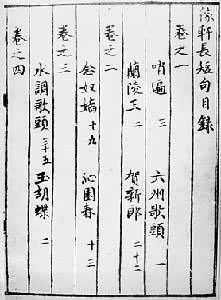 稼軒長短句目錄
卷之一
哨遍 三 六州歌頭 一
蘭陵王 二 賀新郎 二十二
卷之二
念奴嬌 十九 沁園春 十二
卷之三
水調歌頭 三十五 玉胡蝶 二
卷之四